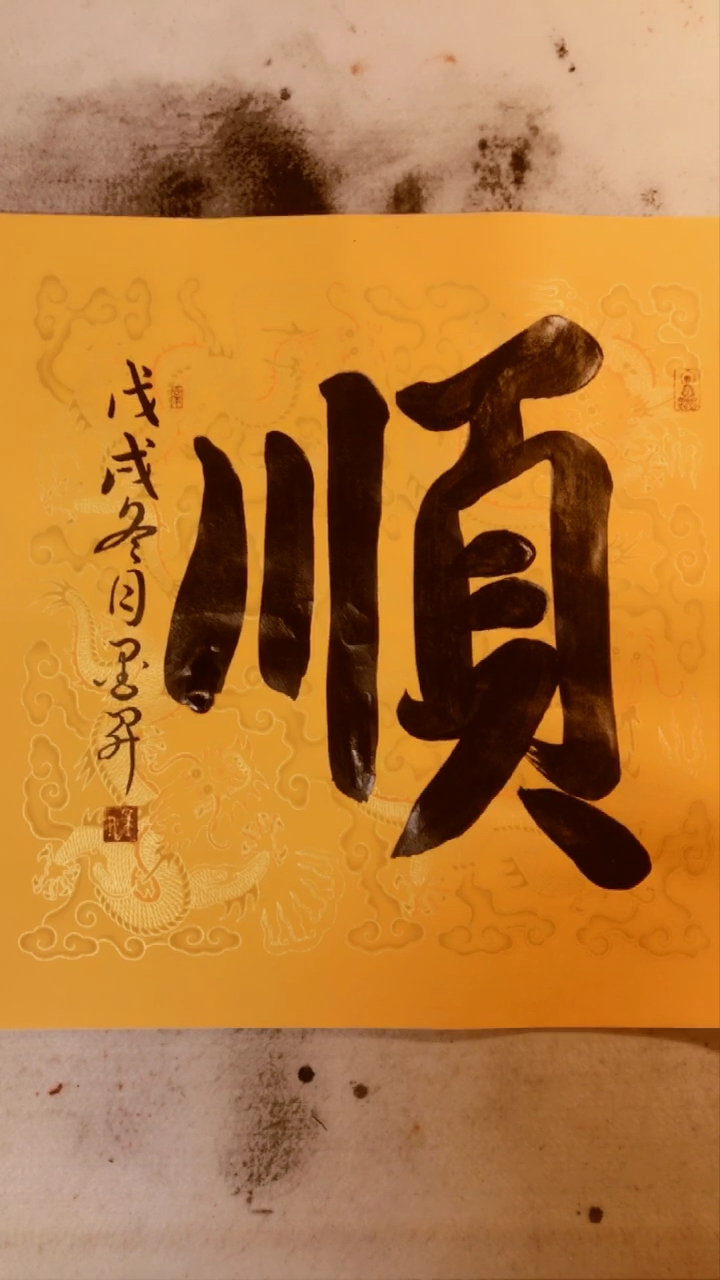 順
戊戌冬月墨昇